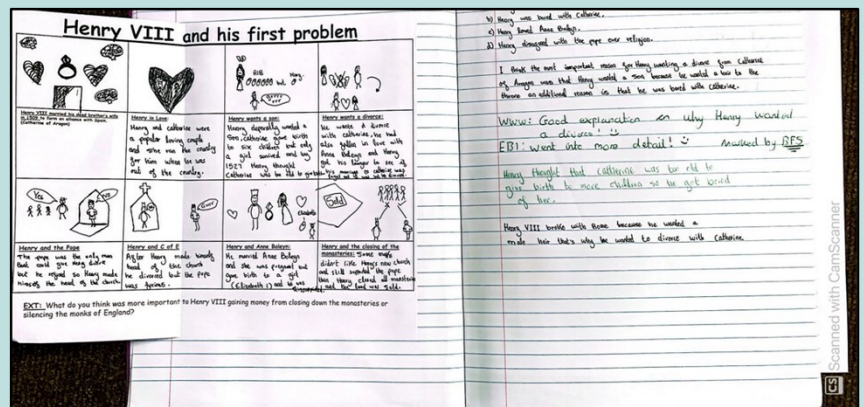 Henry VIII and his first problem
Henry VIII married his dead brother's wife
in 1509 to form an alliance with Spain.
(Catherine of Aragon)
Henry in Love:
Henry and catherine were
a popular loving couple
and she ran the country
for him when he was
out of the country.
Henry wants a son:
Henry desperatly wanted a
Son, catherine gave birth
to six children but only
a girl survived and by
1527 Henry thought
Catherine was
Henry wants a divorce:
He wants a divorce
with catherine, he had
also fallen in love with
Anne Boleyn and Henry
Yes
Grrr
Sold
Henry and the Pope
The pope was the only man
that could give Henry divorce
but he refused so Henry made
himself the head of the church.
Henry and C of E
After Henry made himself
head of the church
he divorced but the pope
was furious.
Henry and Anne Boleyn:
He married Anne Boleyn
and she was pregnant but
gave birth to a girl
(Elizabeth 1) and he was
Henry and the closing of the
monasteries: Some monks
didn't like Henry's new church
and still supported the pope
then Henry closed all monasteries
and the land was sold.
EXT: What do you think was more important to Henry VIII gaining money from closing down the monasteries or
silencing the monks of England?
b) Henry was bored with Catherine.
c) Henry loved Anne Boleyn.
d) Henry disagreed with the pope over religion.
I think the most important reason for Henry wanting a divorce from Catherine
of Aragon was that Henry wanted a son because he wanted a heir to the
throne an additional reason is that he was bored with catherine.
WWW: Good explanation on why Henry wanted
a divorce!
EBI: Went into more detail! Marked by BFS
Henry thought that catherine was too old to
give birth to more children so he got bored
of her.
Henry VIII broke with Rome because he wanted a
male heir that's why he wanted to divorce with catherine.
CS Scanned with CamScanner